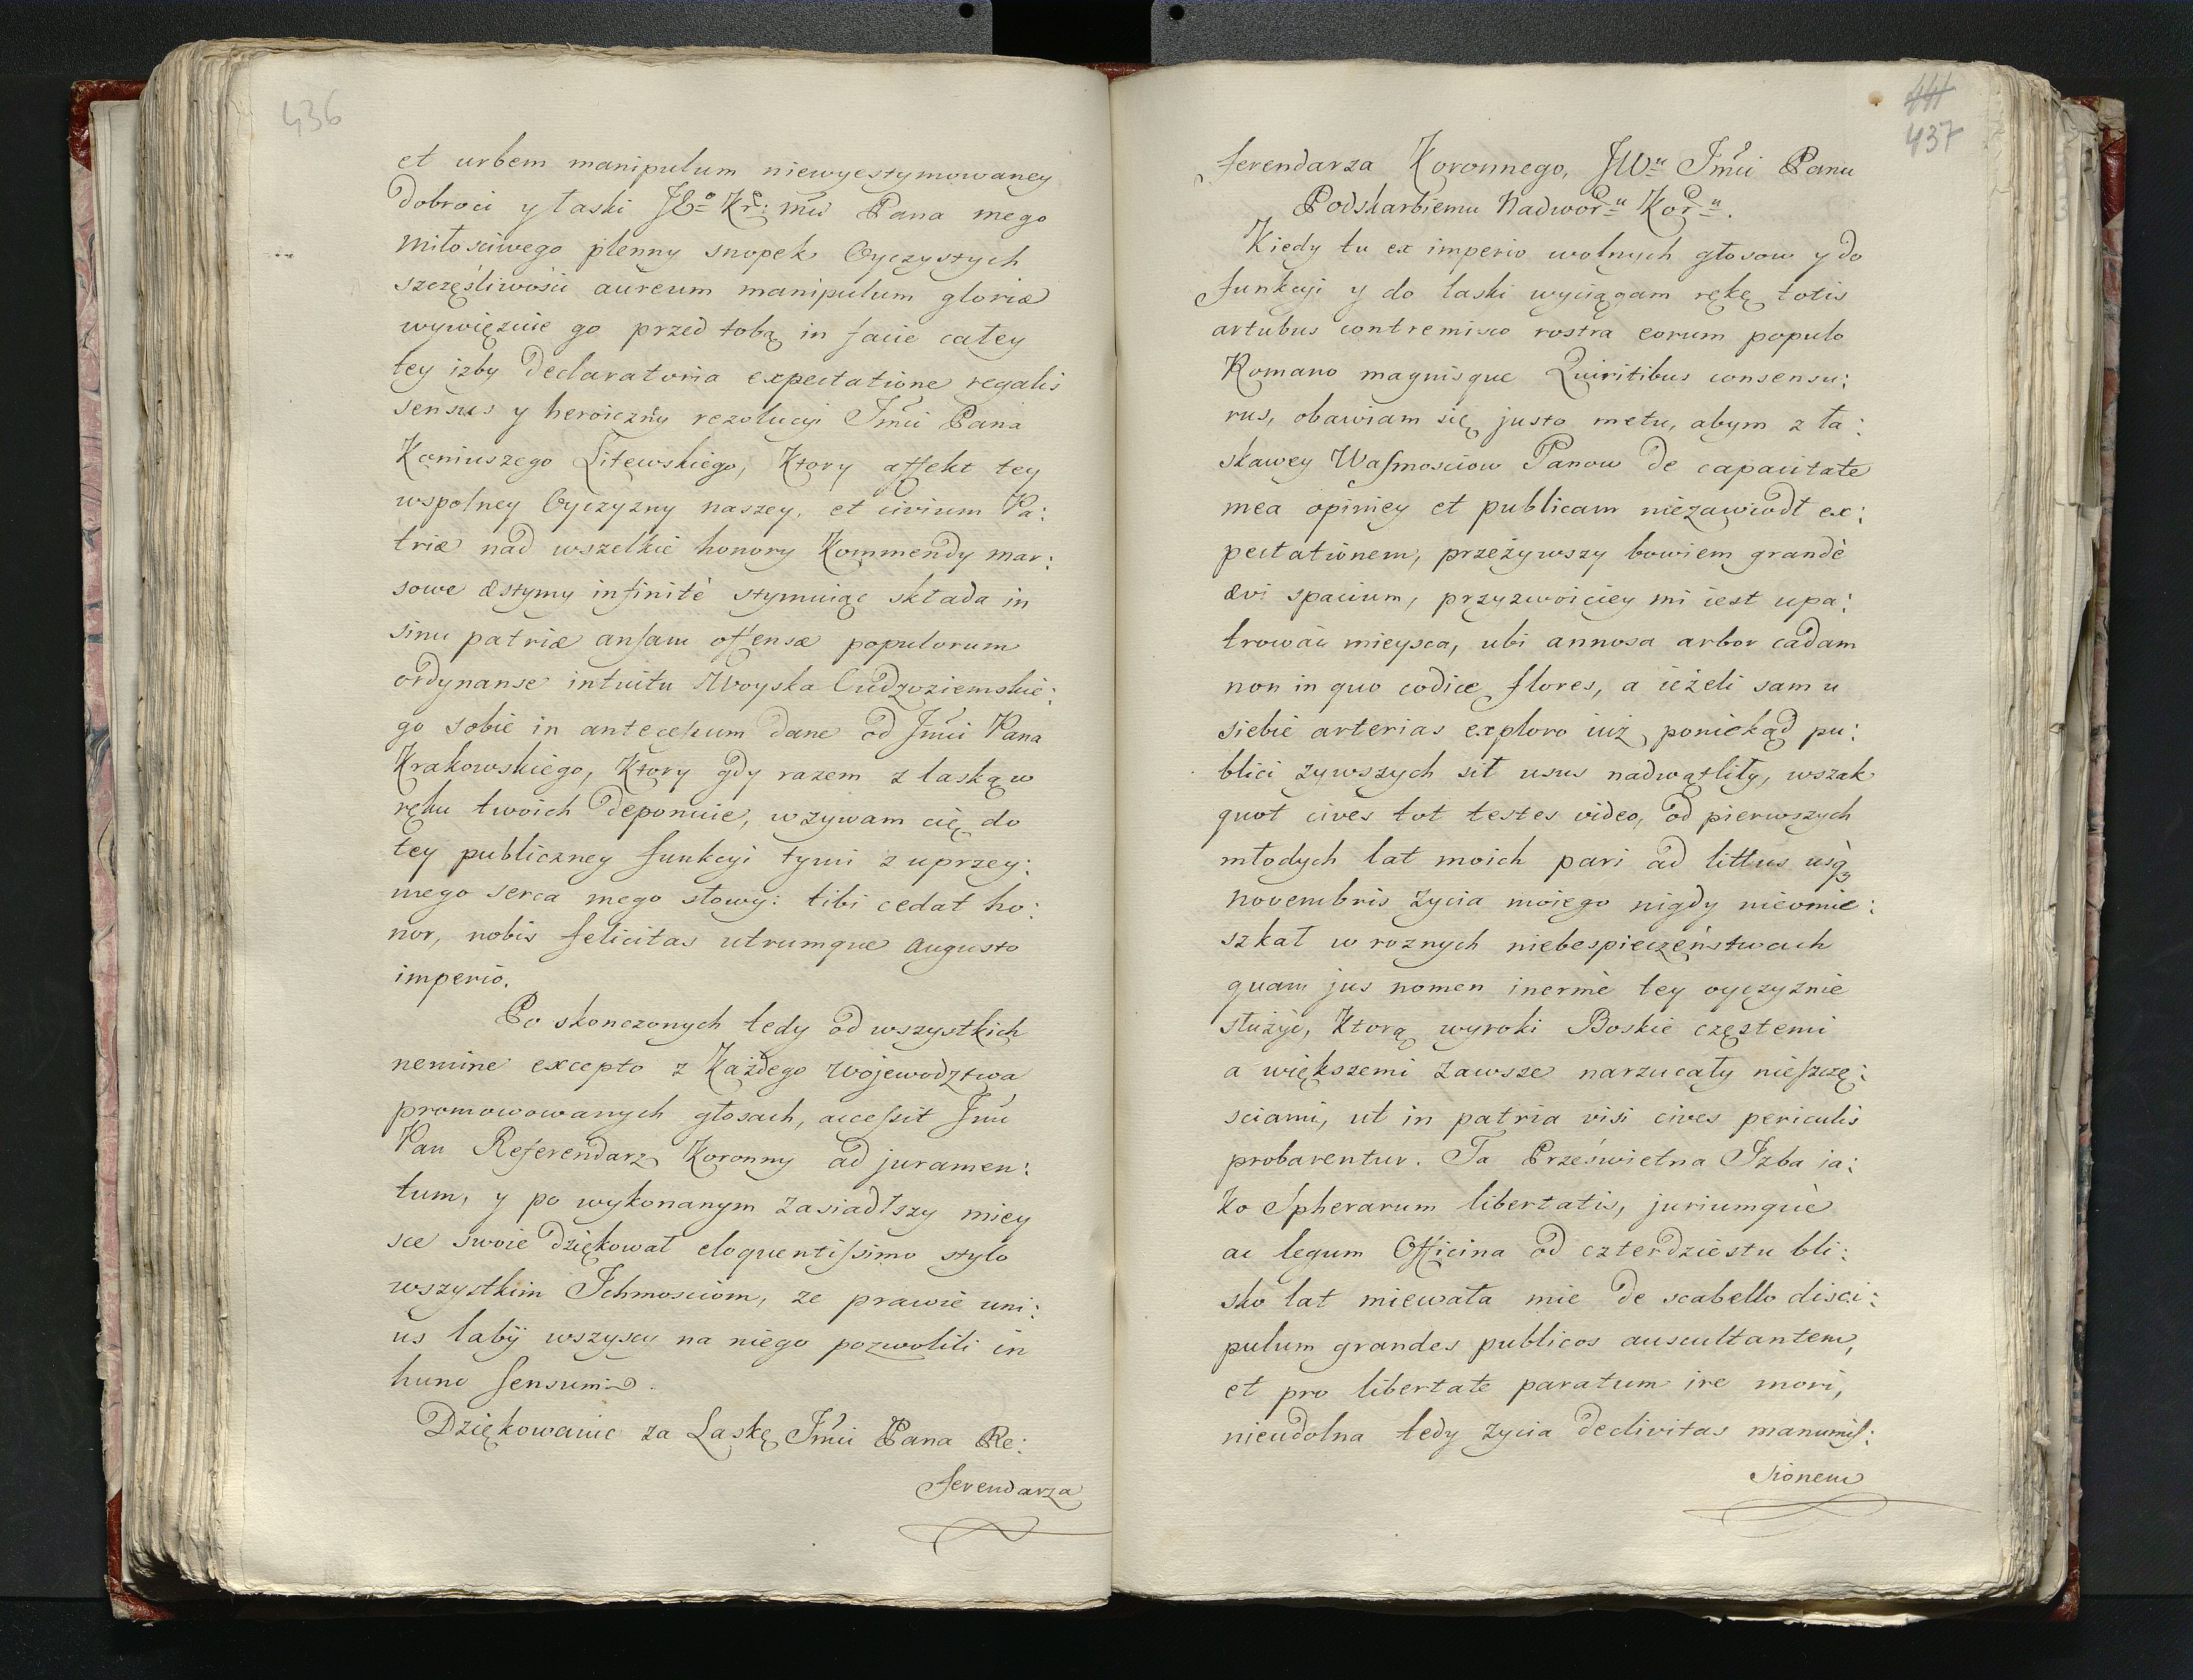 436
et urbem manipulum niewyestymowaney
dobroci y łaski JEº Kr: mci Pana mego
Miłosciwego plenny snopek Oyczystych
szczęśliwości aureum manipulum gloriæ
wywięzuie go przed tobą in facie całey
tey izby declaratoria expectatione regalis
sensus y heroiczny rezolucyi Jmci Pana
Koniuszego Litewskiego, Ktory affekt tey
wspolney Oyczyzny naszey, et civium Pa:
triæ nad wszelkie honory Kommendy mar:
sowe æstymy infinitè stymuiąc składa in
sinu patriæ ansam offensæ populorum
ordynanse intuitu Woyska Cudzoziemskie:
go sobie in antecessum dane od Jmci Pana
Krakowskiego, Ktory gdy razem z laską w
ręku twoich deponuie, wzywam cię do
tey publiczney funkcyi tymi z uprzey:
mego serca mego słowy: tibi cedat ho:
nor, nobis felicitas utrumque Augusto
imperio.
Po skonczonych tedy od wszystkich
nemine excepto z Każdego Wojewodztwa
promowowanych głosach, accessit Jmci
Pan Referendarz Koronny ad juramen:
tum, y po wykonanym zasiadłszy miey
sce swoie dziękował eloquentissimo stylo
wszystkim Ichmosciom, ze prawie uni:
us labÿ wszyscy na niego pozwolili in
hunc sensum.
Dziękowanie za Laskę Jmci Pana Re:
ferendarza
441
437
ferendarza Koronnego, JWu Jmci Panu
Podskarbiemu Nadworu Koru.
Kiedy tu ex imperio wolnych głosow y do
funkcyi y do laski wyciągam rękę totis
artubus contremisco rostra eorum populo
Romano magnisque Quiritibus consensu:
rus, obawiam się justo metu, abym z ła:
skawey Wasmosciow Panow de capacitate
mea opiniey et publicam niezawiodł ex:
pectationem, przeżywszy bowiem grandè
ævi spacium, przyzwoiciey mi iest upa:
trować mieysca, ubi annosa arbor cadam
non in quo codice flores, a ieżeli sam u
siebie arterias exploro iuż poniekąd pu:
blici zywszych sił usus nadwątliły, wszak
quot cives tot testes video, od pierwszych
młodych lat moich pari ad littus usq3
novembris zycia moiego nigdy nieomie:
szkał w roznych niebespieczeństwach
quam jus nomen inermè tey oyczyznie
służyć, Ktorą wyroki Boskie częstemi
a większemi zawsze narzucały nieszczę:
sciami, ut in patria visi cives periculis
probarentur. Ta Prześwietna Izba ia:
ko Spherarum libertatis, juriumquè
ac legum Officina od czterdziestu bli:
sko lat miewała mie de scabello disci:
pulum grandes publicos auscultantem,
et pro libertate paratum ire mori,
nieudolna tedy zycia declivitas manumis:
sionem